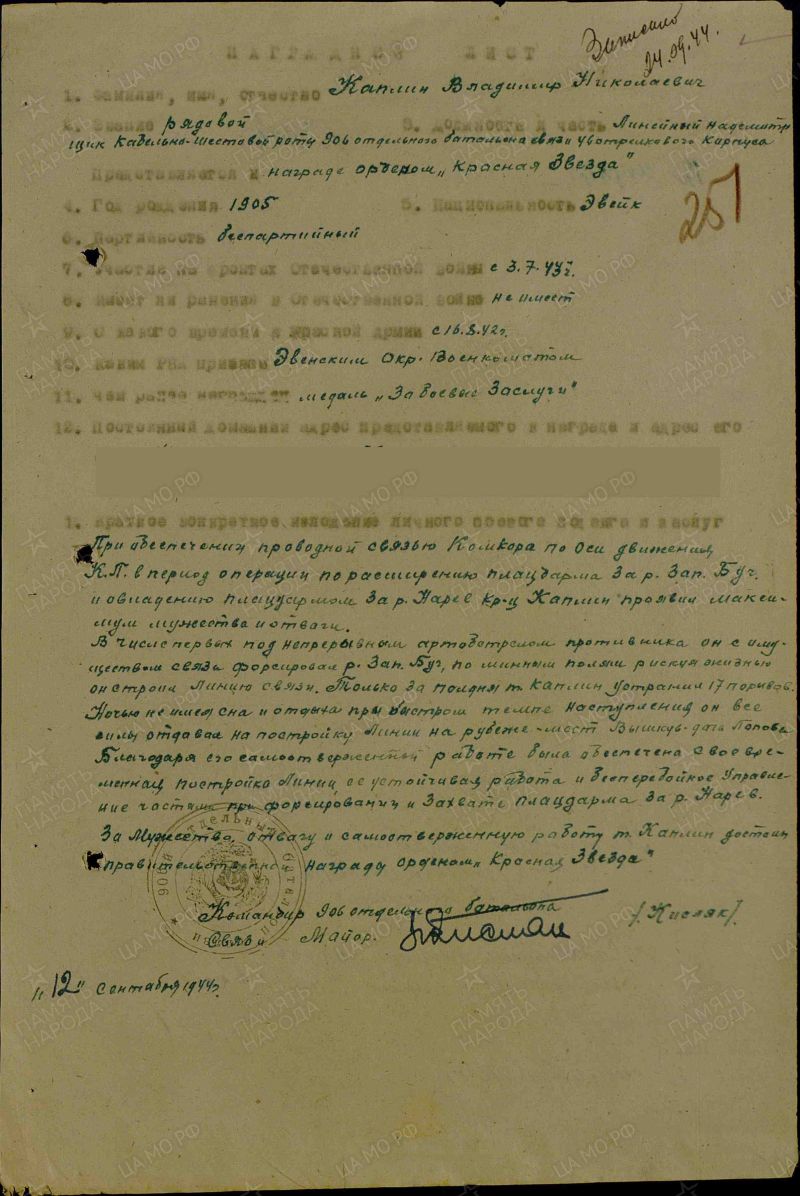 Записано
24.09.44.
НАГРАДНОЙ ЛИСТ
1. Фамилия, имя, отчество Каплин Владимир Николаевич
2. Звание рядовой 3. Должность и часть Линейный надсмотр
щик Кабельно-шестовой роты 906 отдельного батальона связи стрелкового Корпуса
Представляется к награде орденом „Красная Звезда"
251
4. Год рождения 1905 5. Национальность Эвейк
6. Партийность беспартийный
7. Участие на фронтах Отечественной войны с 3.7.
8. Имеет ли ранения в Отечественной войне не имеет
9. С какого времени в Красной армии с 16.8.42г.
10. Каким РВК призван Эвенским Окр. Военкоматом
11. Чем ранее награжден медаль „За боевые Заслуги"
12. Постоянный домашний адрес представляемого к награде и адрес его
1. Краткое конкретное изложение личного боевого подвига и заслуг
При обеспечении проводной связью Комкора по Оси движения
К.П. в период операции по расширению плацдарма за р. Зап. Буг.
и овладению плацдармом за р. Нарев кр-ц Каплин проявил макси-
мум мужества и отваги.
В числе первых под непрерывным артобстрелом противника он с иму-
ществом связи форсировал р. Зап. Буг, по минным полям рискуя жизнью
он строил Линию связи. Только за полдня т. Каплин устранил 17 порывов.
Ночью не имея сна и отдыха при быстром темпе наступления он все
силы отдавал на постройку Линии на рубеже мест. Вышкув
Благодаря его самоотверженной работе была обеспечена своевре-
менная постройка Линии, ее устойчивая работа и бесперебойное Управле-
ние частями при форсировании и Захвате плацдарма за р. Нарев.
За Мужество, отвагу и самоотверженную работу т. Каплин достоин
правительственной награды орденом „Красная Звезда"
Командир 906 отдельного батальона
Связи – Майор. /Кисляк/.
„12" сентября 1944г.
ЦА МО РФ
ПАМЯТЬ НАРОДА